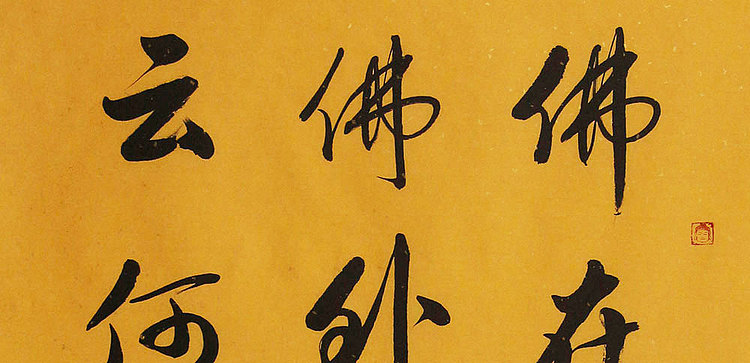 佛在
佛
云何